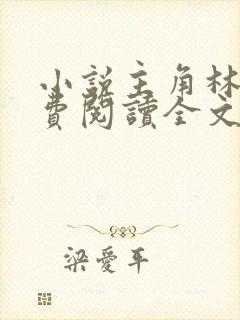 小說主角林
費閱讀全文
梁愛平